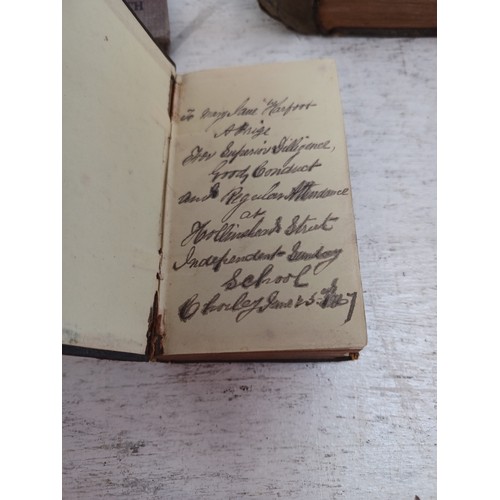 TH
to Mary Jane
A Prize
For Superior Dilligence,
Good Conduct
and Regular Attendance
at
Hollinshead Street
Independent Sunday
School
Chorley June 25th